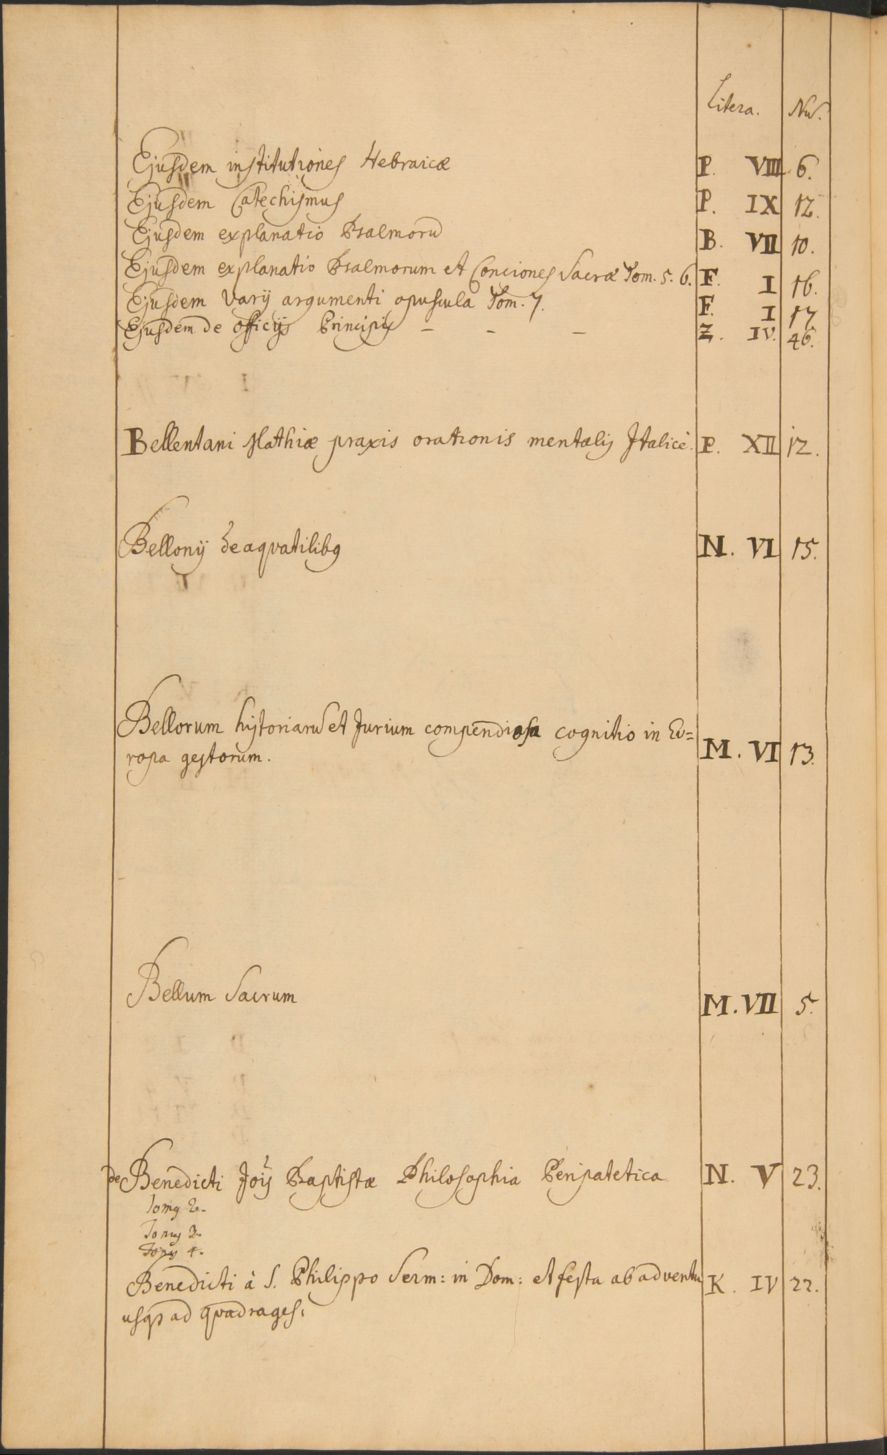 Litera. Nus.
Ejusdem institutiones Hebraicæ P. VIII 6.
Ejusdem Catechismus P. IX 12.
Ejusdem explanatio Psalmorū B. VII 10.
Ejusdem explanatio Psalmorum et Conciones Sacræ Tom. 5. 6. F. I 16.
Ejusdem Varij argumenti opuscula Tom. 7. F. I 17
Ejusdem de officijs Principis – – – Z. IV. 46.
Bellentani Mathiæ praxis orationis mentalis Italicè. P. XII 12.
Bellonij de aquatilibq N. VI 15.
Bellorum historiarū et Jurium compendiosa cognitio in Eu= M. VI 13.
ropa gestorum.
Bellum Sacrum M. VII 5.
de Benedicti Jois Baptistæ Philosophia Peripatetica N. V 23.
Tomq 2.
Tomq 3.
Tomq 4.
Benedicti à S. Philippo Serm: in Dom: et festa ab adventu K. IV 22.
usqȝ ad quadrages: